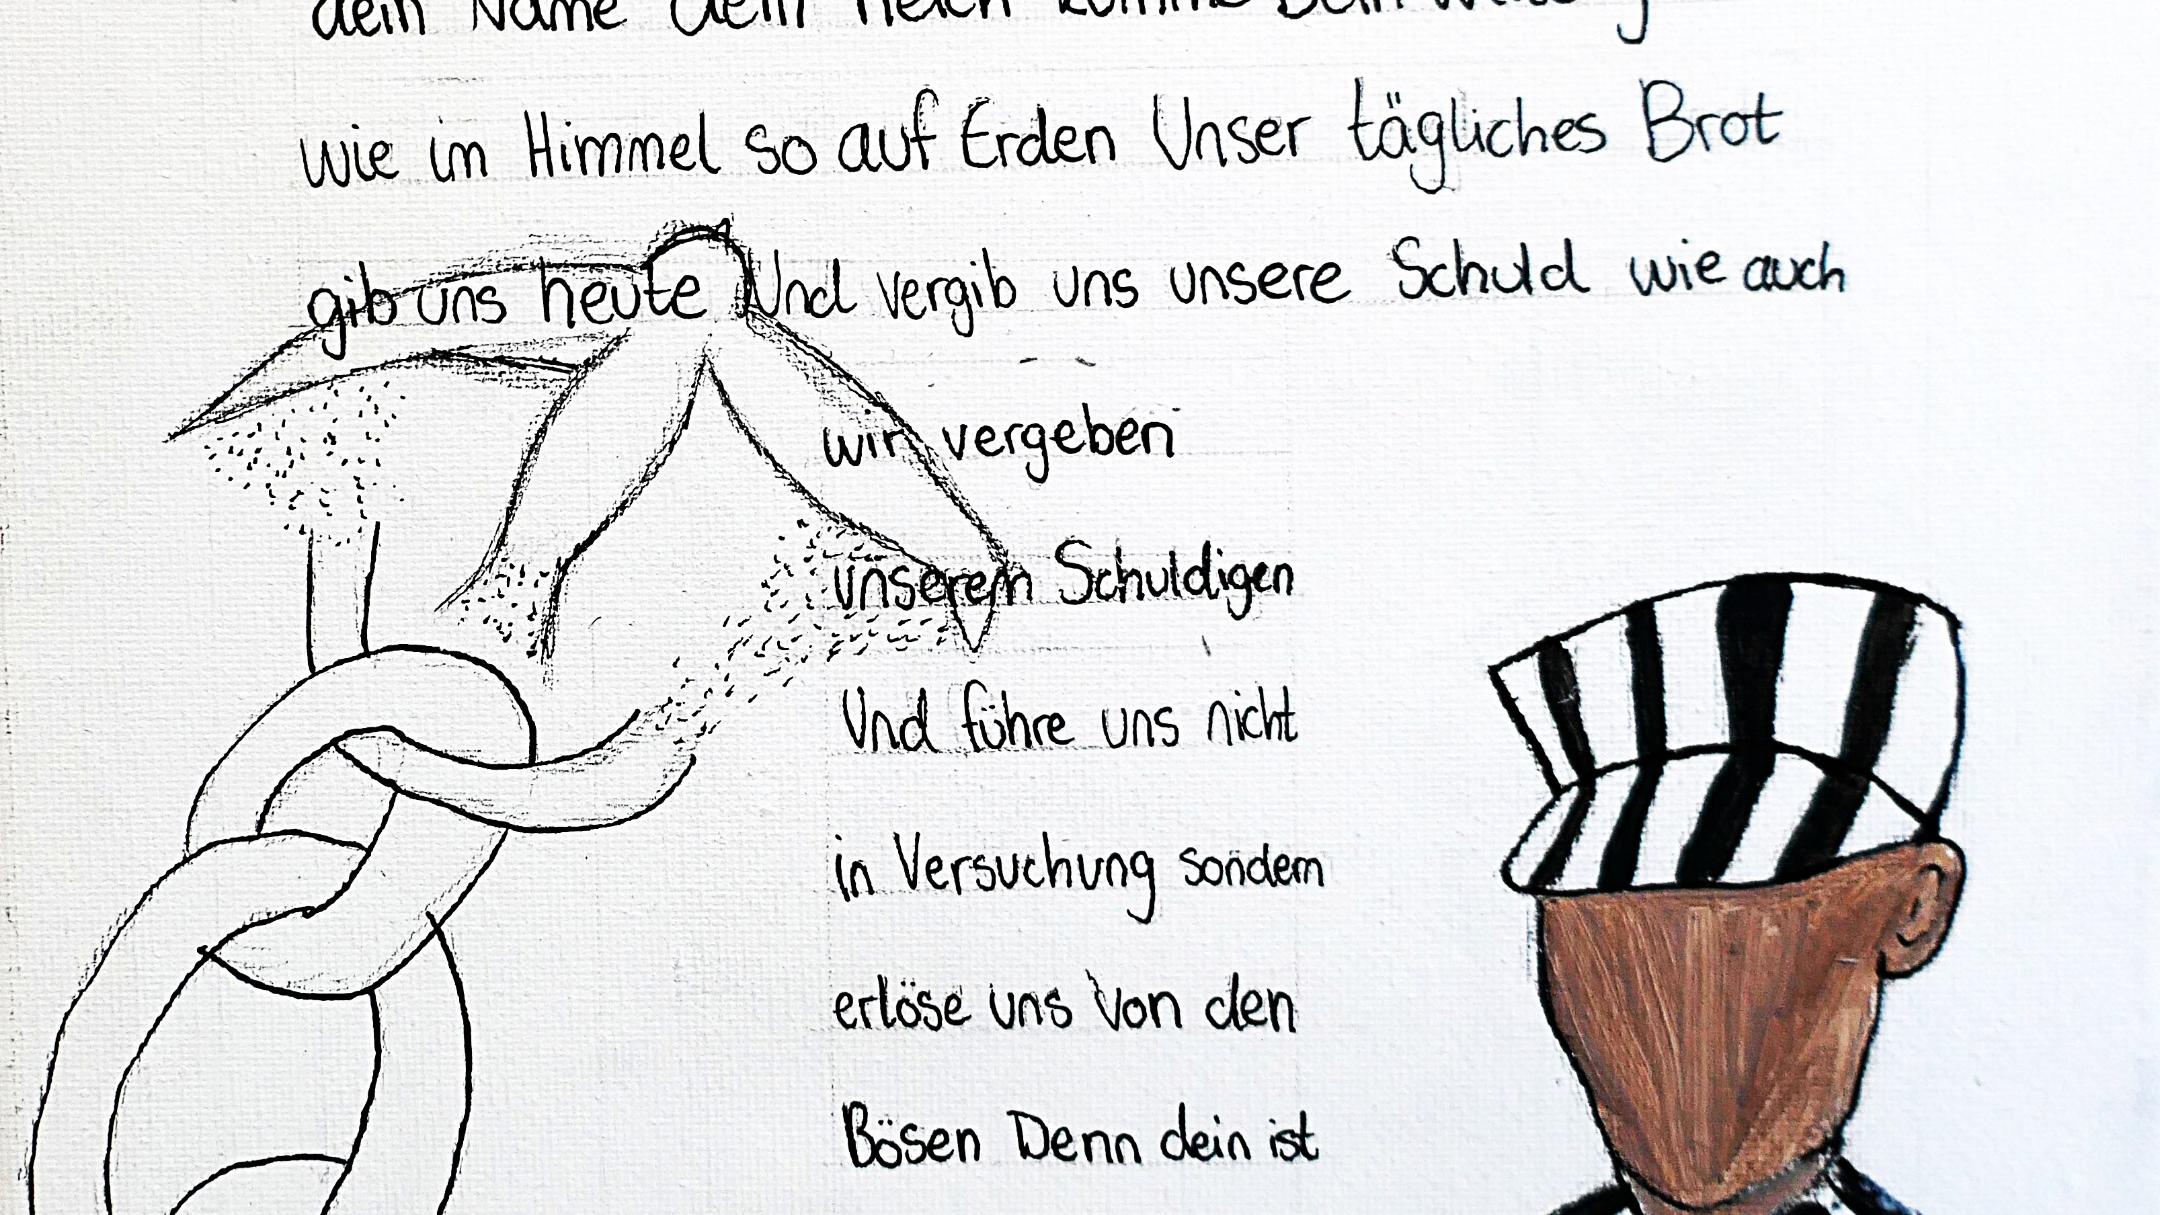 dein Name dein Reich komme Dein Wille
wie im Himmel so auf Erden Unser tägliches Brot
gib uns heute Und vergib uns unsere Schuld wie auch
wir vergeben
unserem Schuldigen
Und führe uns nicht
in Versuchung sondern
erlöse uns von den
Bösen Denn dein ist